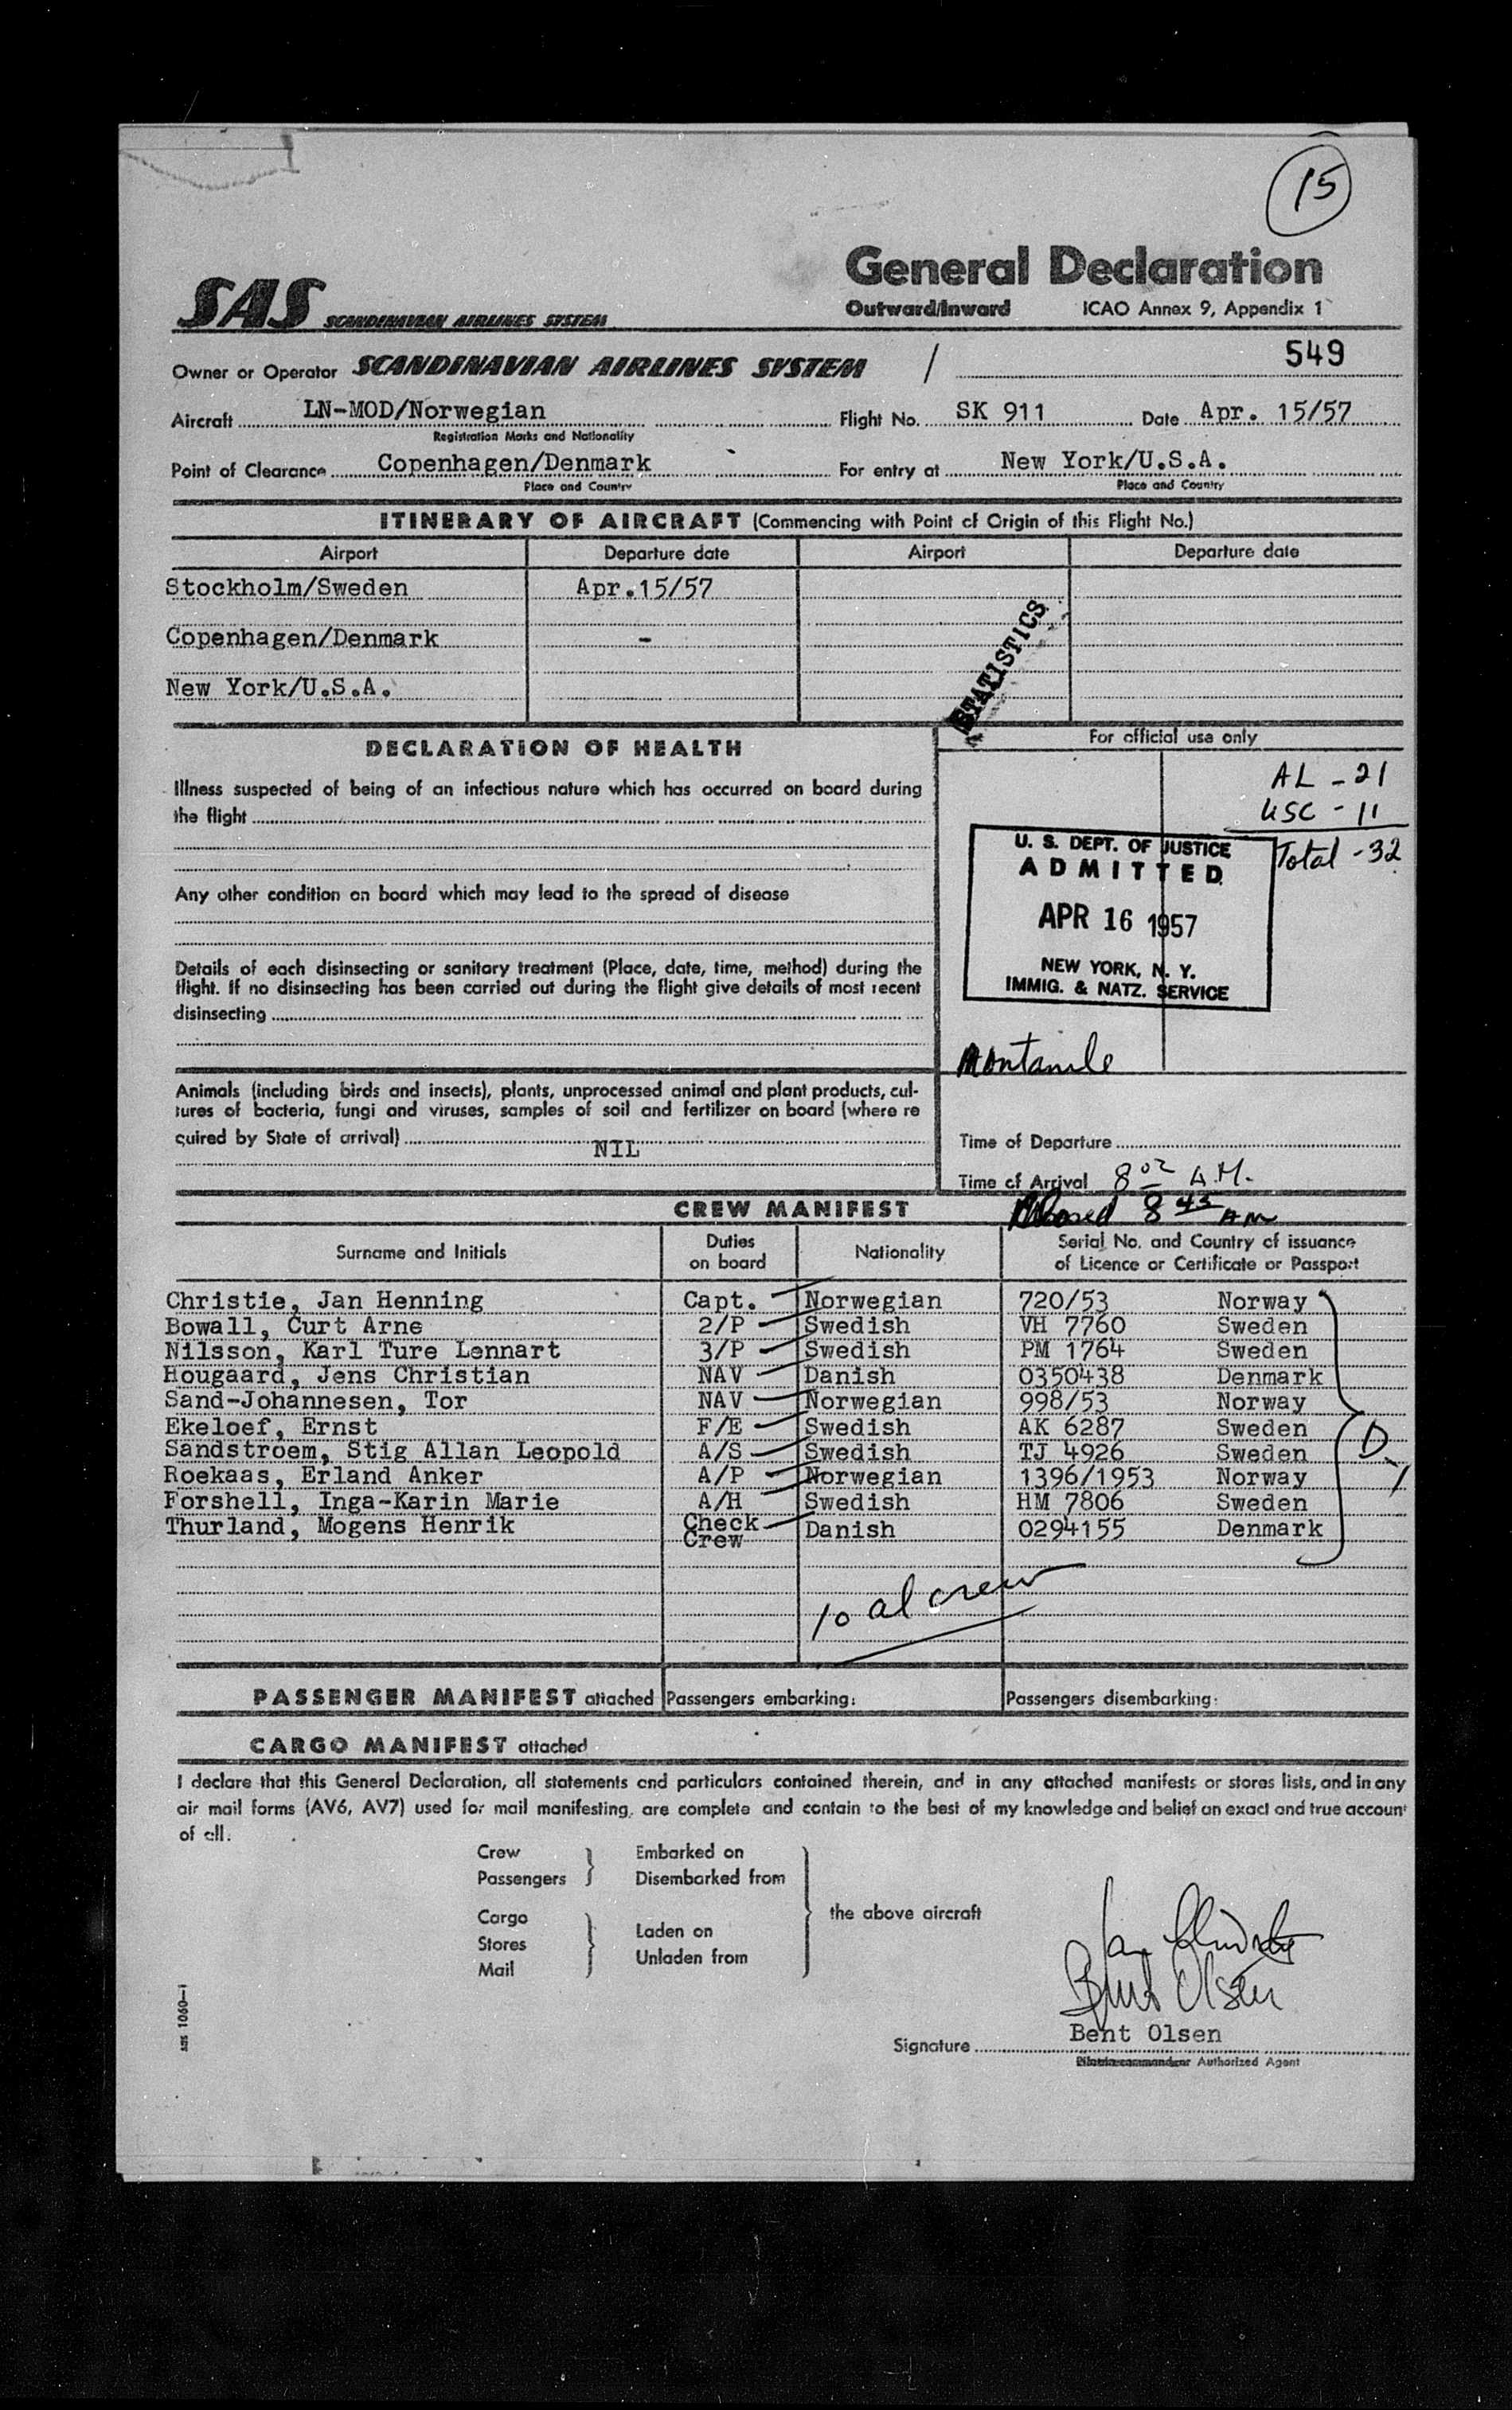 15
SAS SCANDINAVIAN AIRLINES SYSTEM
General Declaration
Outward/Inward ICAO Annex 9, Appendix 1
549
Owner or Operator SCANDINAVIAN AIRLINES SYSTEM /
Aircraft LN-MOD/Norwegian Flight No. SK 911 Date Apr. 15/57
Registration Marks and Nationality
Point of Clearance Copenhagen/Denmark For entry at New York/U.S.A.
Place and Country Place and Country
ITINERARY OF AIRCRAFT (Commencing with Point of Origin of this Flight No.)
Airport Departure date Airport Departure date
Stockholm/Sweden Apr.15/57
Copenhagen/Denmark -
New York/U.S.A.
STATISTICS
DECLARATION OF HEALTH
Illness suspected of being of an infectious nature which has occurred on board during
the flight
Any other condition on board which may lead to the spread of disease
Details of each disinsecting or sanitary treatment (Place, date, time, method) during the
flight. If no disinsecting has been carried out during the flight give details of most recent
disinsecting
For official use only
AL - 21
USC - 11
Total - 32
U. S. DEPT. OF JUSTICE
ADMITTED
APR 16 1957
NEW YORK, N. Y.
IMMIG. & NATZ. SERVICE
Animals (including birds and insects), plants, unprocessed animal and plant products, cul-
tures of bacteria, fungi and viruses, samples of soil and fertilizer on board (where re
quired by State of arrival)
NIL
Time of Departure
Time of Arrival 8 02 A.M.
8 45 AM
CREW MANIFEST
Surname and Initials Duties on board Nationality Serial No. and Country of issuance of Licence or Certificate or Passport
Christie, Jan Henning Capt. Norwegian 720/53 Norway
Bowall, Curt Arne 2/P Swedish VH 7760 Sweden
Nilsson, Karl Ture Lennart 3/P Swedish PM 1764 Sweden
Hougaard, Jens Christian NAV Danish 0350438 Denmark
Sand-Johannesen, Tor NAV Norwegian 998/53 Norway
Ekeloef, Ernst F/E Swedish AK 6287 Sweden
Sandstroem, Stig Allan Leopold A/S Swedish TJ 4926 Sweden
Roekaas, Erland Anker A/P Norwegian 1396/1953 Norway
Forshell, Inga-Karin Marie A/H Swedish HM 7806 Sweden
Thurland, Mogens Henrik Check Crew Danish 0294155 Denmark
D
10 al crew
PASSENGER MANIFEST attached Passengers embarking: Passengers disembarking:
CARGO MANIFEST attached
I declare that this General Declaration, all statements and particulars contained therein, and in any attached manifests or stores lists, and in any
air mail forms (AV6, AV7) used for mail manifesting, are complete and contain to the best of my knowledge and belief an exact and true account
of all.
Crew Embarked on
Passengers Disembarked from
the above aircraft
Cargo
Stores Laden on
Mail Unladen from
Jan Christie
Bent Olsen
Bent Olsen
Signature
Authorized Agent
sas 1060—1